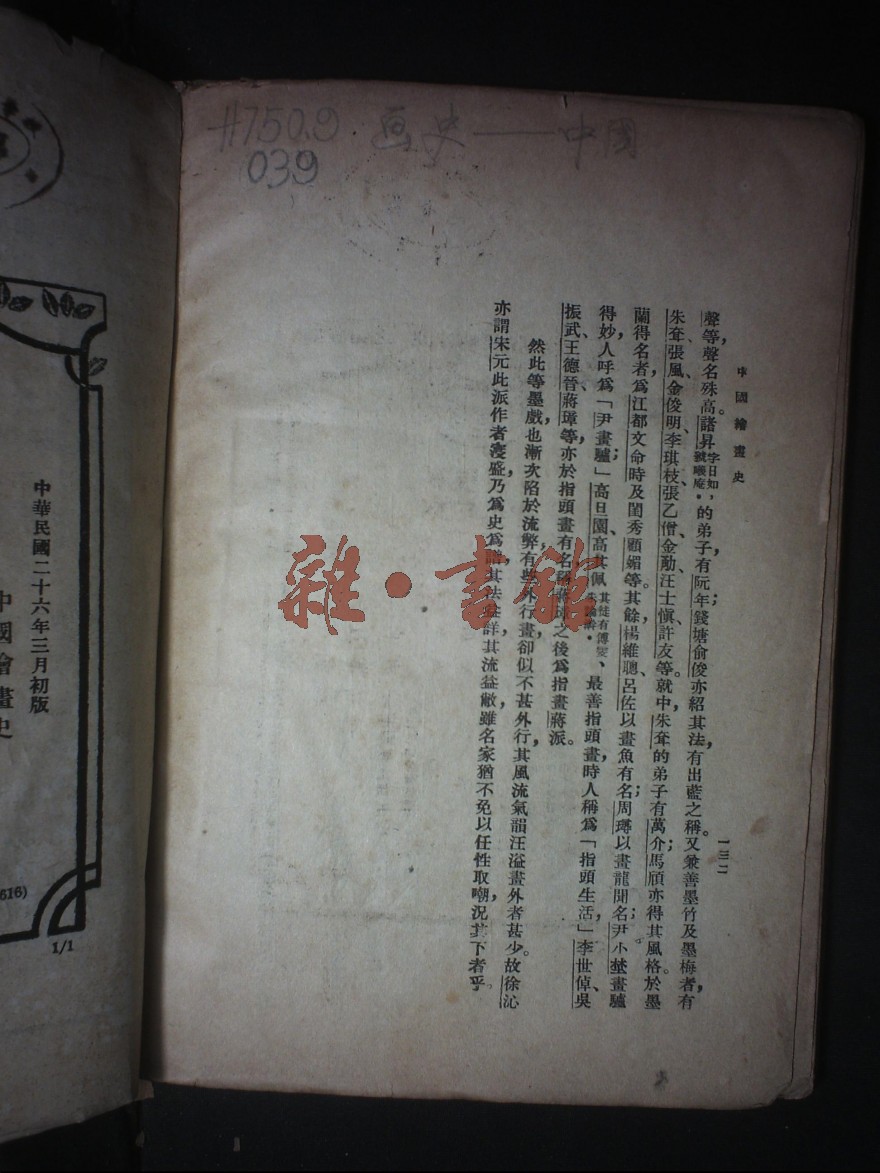 #750.9 画史——中國
039
中國繪畫史
一三二
聲等，聲名殊高。諸昇字日如，號曦庵。的弟子有阮年；錢塘俞俊亦紹其法，有出藍之稱。又兼善墨竹及墨梅者，有
朱耷、張風、金俊明、李琪枝、張乙僧、金勱、汪士愼、許友等。就中，朱耷的弟子有萬介；馬頎亦得其風格。於墨
蘭得名者，爲江都文命時及閨秀顧媚等。其餘，楊維聰、呂佐以畫魚有名；周璕以畫龍聞名；尹小埜畫驢
得妙，人呼爲「尹畫驢」；高日園、高其佩其徒有傅雯、最善指頭畫，時人稱爲「指頭生活」，李世倬、吳
振武、王德晉、蔣璋等，亦於指頭畫有名，稱蔣璋之後爲指畫蔣派。
然此等墨戲也漸次陷於流弊，有些外行畫，卻似不甚外行，其風流氣韻汪溢畫外者甚少。故徐沁
亦謂宋元此派作者寖盛，乃爲史爲譜，其法益詳，其流益敝，雖名家猶不免以任性取嘲，況其下者乎。
雜·書館
中華民國二十六年三月初版
中國繪畫史
616)
1/1